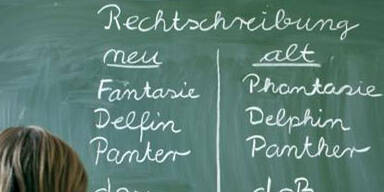 Rechtschreibung
neu alt
Fantasie Phantasie
Delfin Delphin
Panter Panther